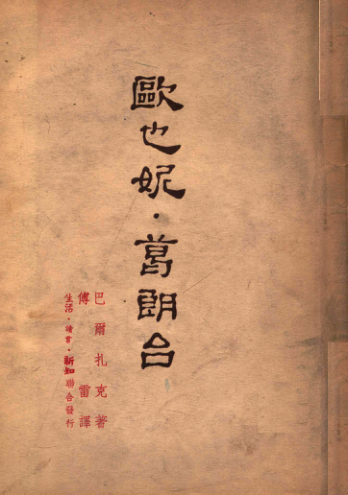 歐也妮·葛朗台
巴爾扎克著
傅雷譯
生活·讀書·新知聯合發行